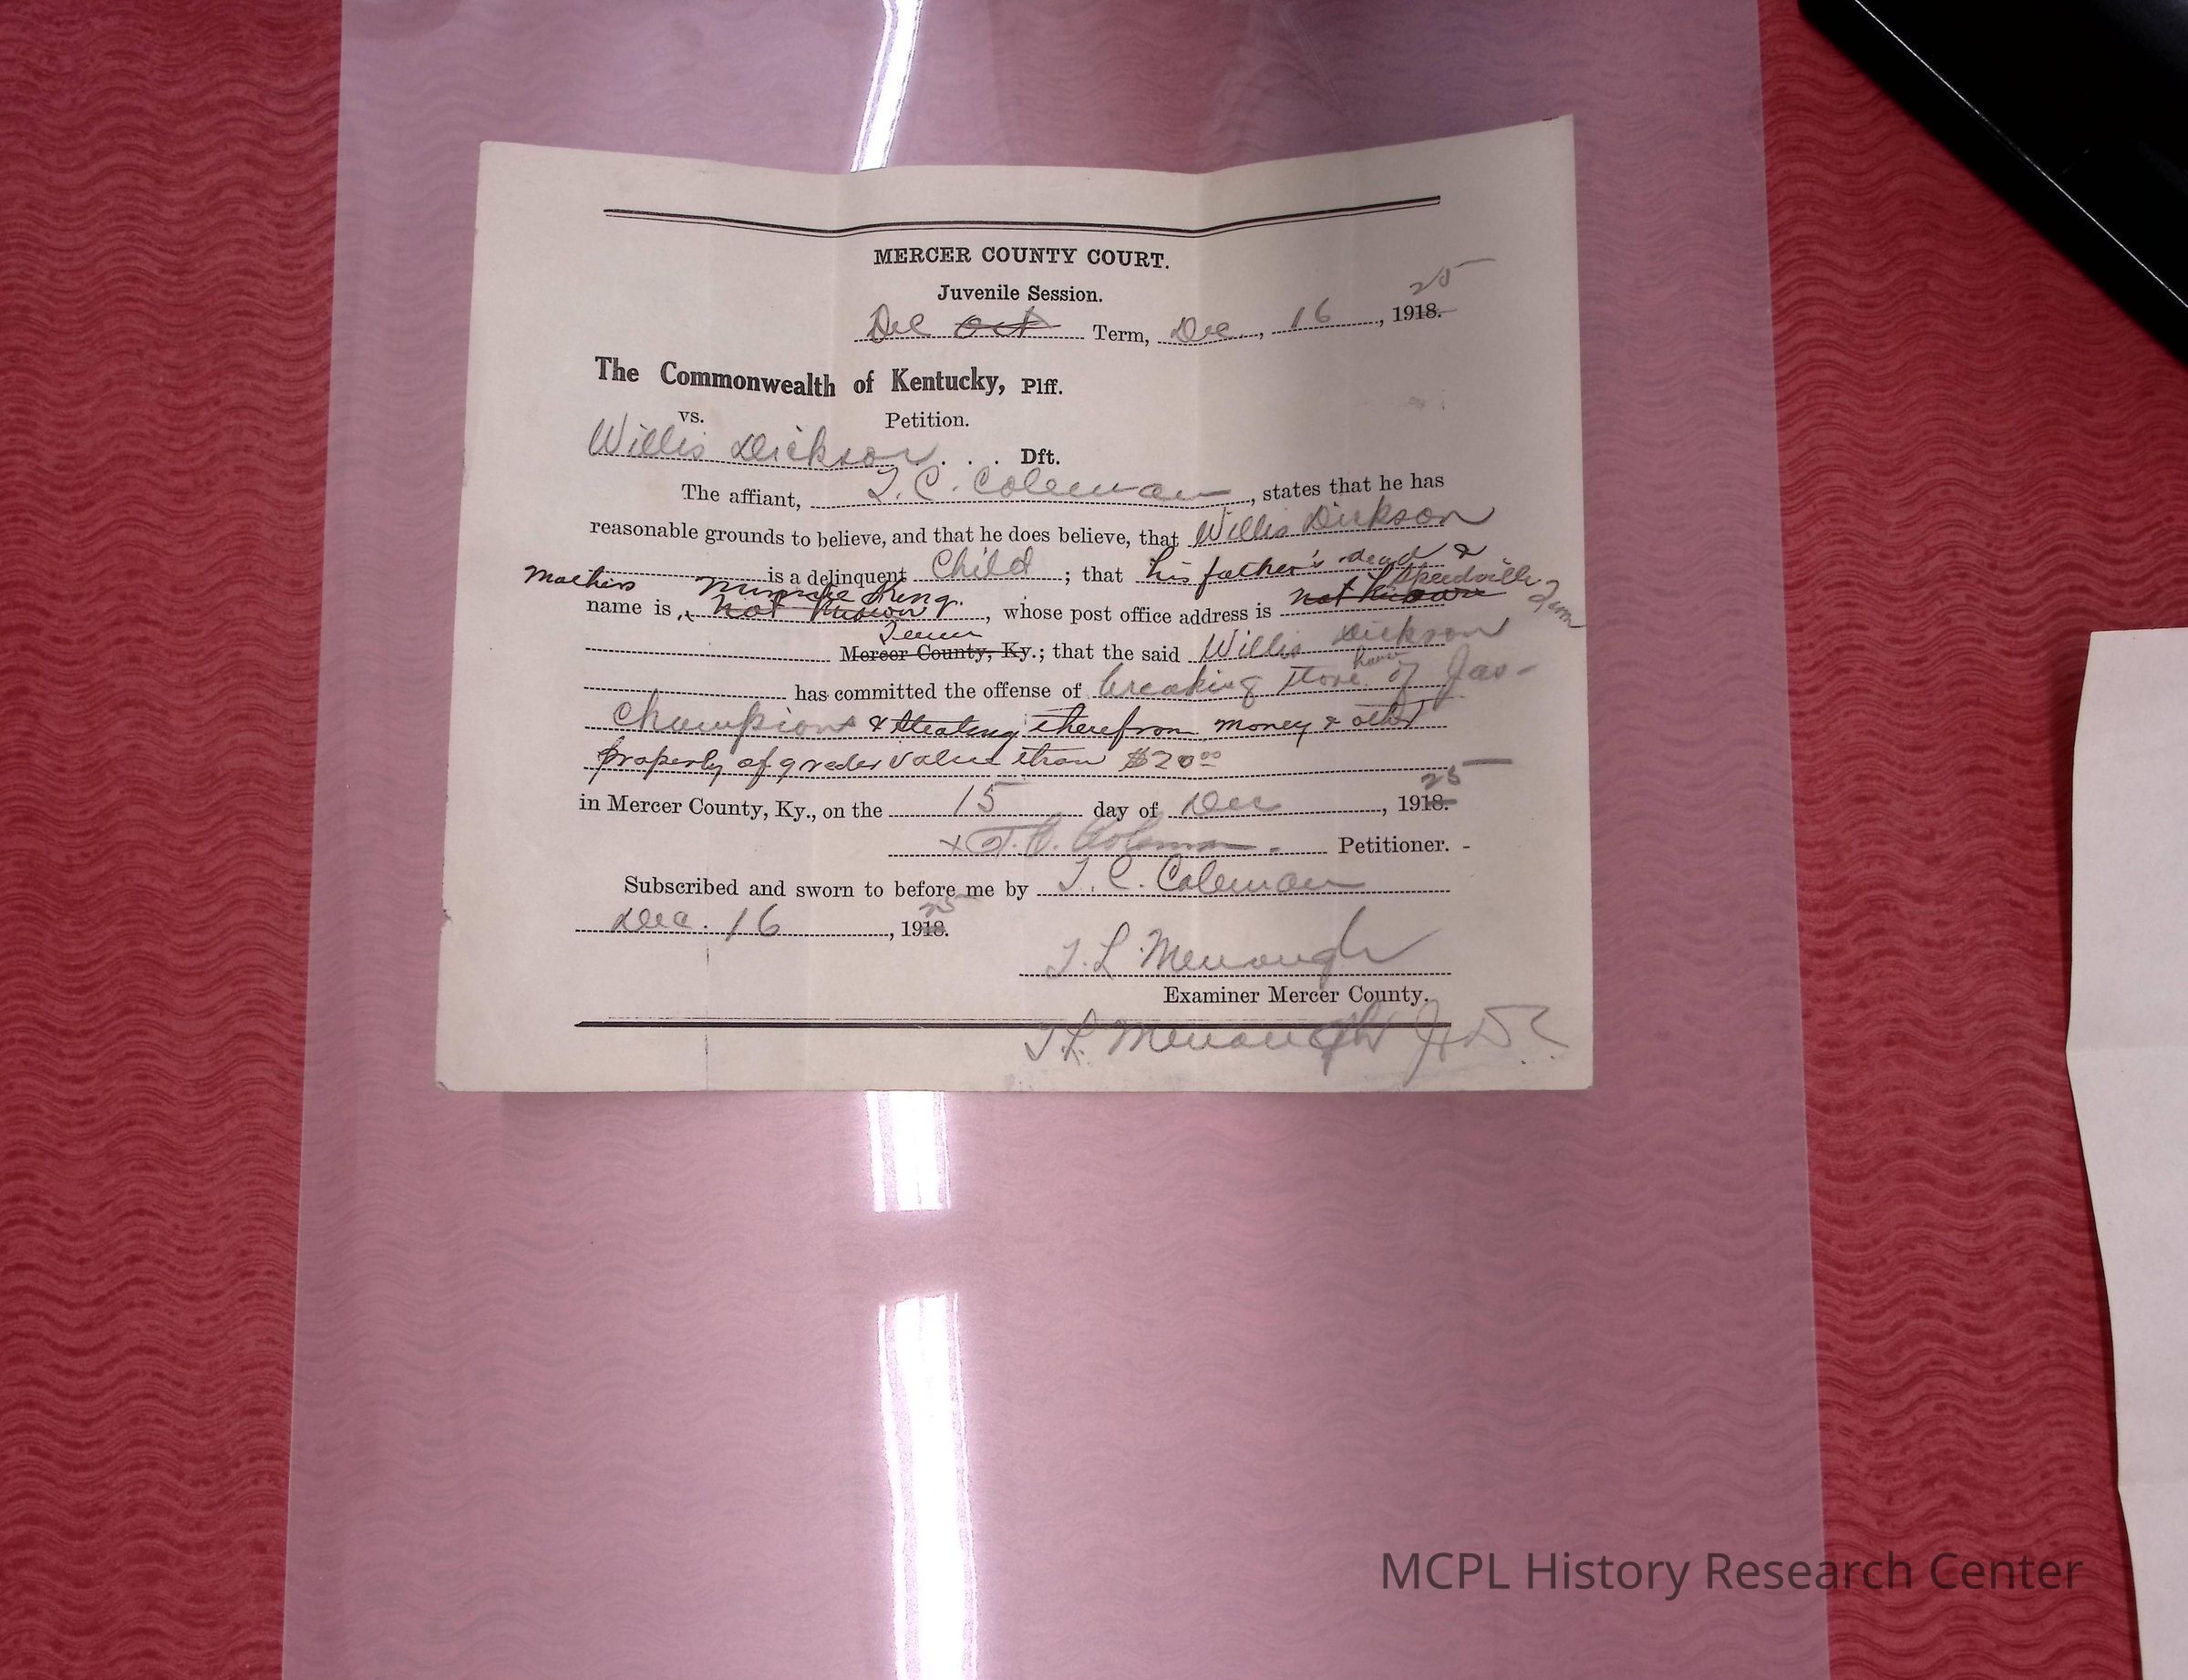 MERCER COUNTY COURT.
Juvenile Session.
25
Dec Oct Term, Dec., 16, 1918.
The Commonwealth of Kentucky, Plff.
vs. Petition.
Willis Dickson . . . Dft.
The affiant, T. C. Coleman, states that he has
reasonable grounds to believe, and that he does believe, that Willis Dickson
is a delinquent Child; that his father's dead &
Mothers Minnie King Speedville Tenn
name is, not known, whose post office address is not known
Tenn
Mercer County, Ky.; that the said Willis Dickson
house
has committed the offense of breaking store of Jas
Champion & stealing therefrom money & other
property of greder value than $20.00
25
in Mercer County, Ky., on the 15 day of Dec, 1918.
x T. C. Coleman. Petitioner. -
Subscribed and sworn to before me by T. C. Coleman
25
Dec. 16, 1918.
T. L. Menaugh
Examiner Mercer County.
T. L. Menaugh
MCPL History Research Center